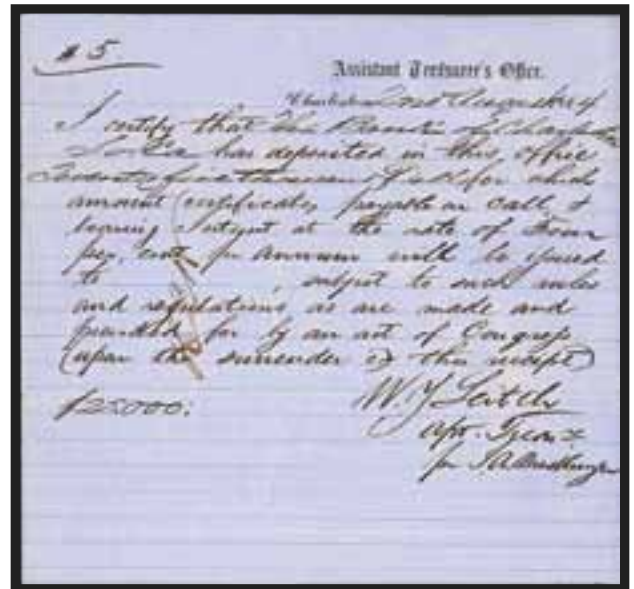 # 5
Assistant Treasurer's Office.
Charleston 2nd August 64
I certify that The Bank of Charleston
has deposited in this office
Twenty five thousand for which
amount certificates, payable on call, &
bearing Interest at the rate of Four
per, cent per annum will be issued
to , subject to such rules
and regulations as are made and
provided for by an act of Congress
(upon the surrender of this receipt)
$25000:
W. Y. Leitch
Asst. Treas
for